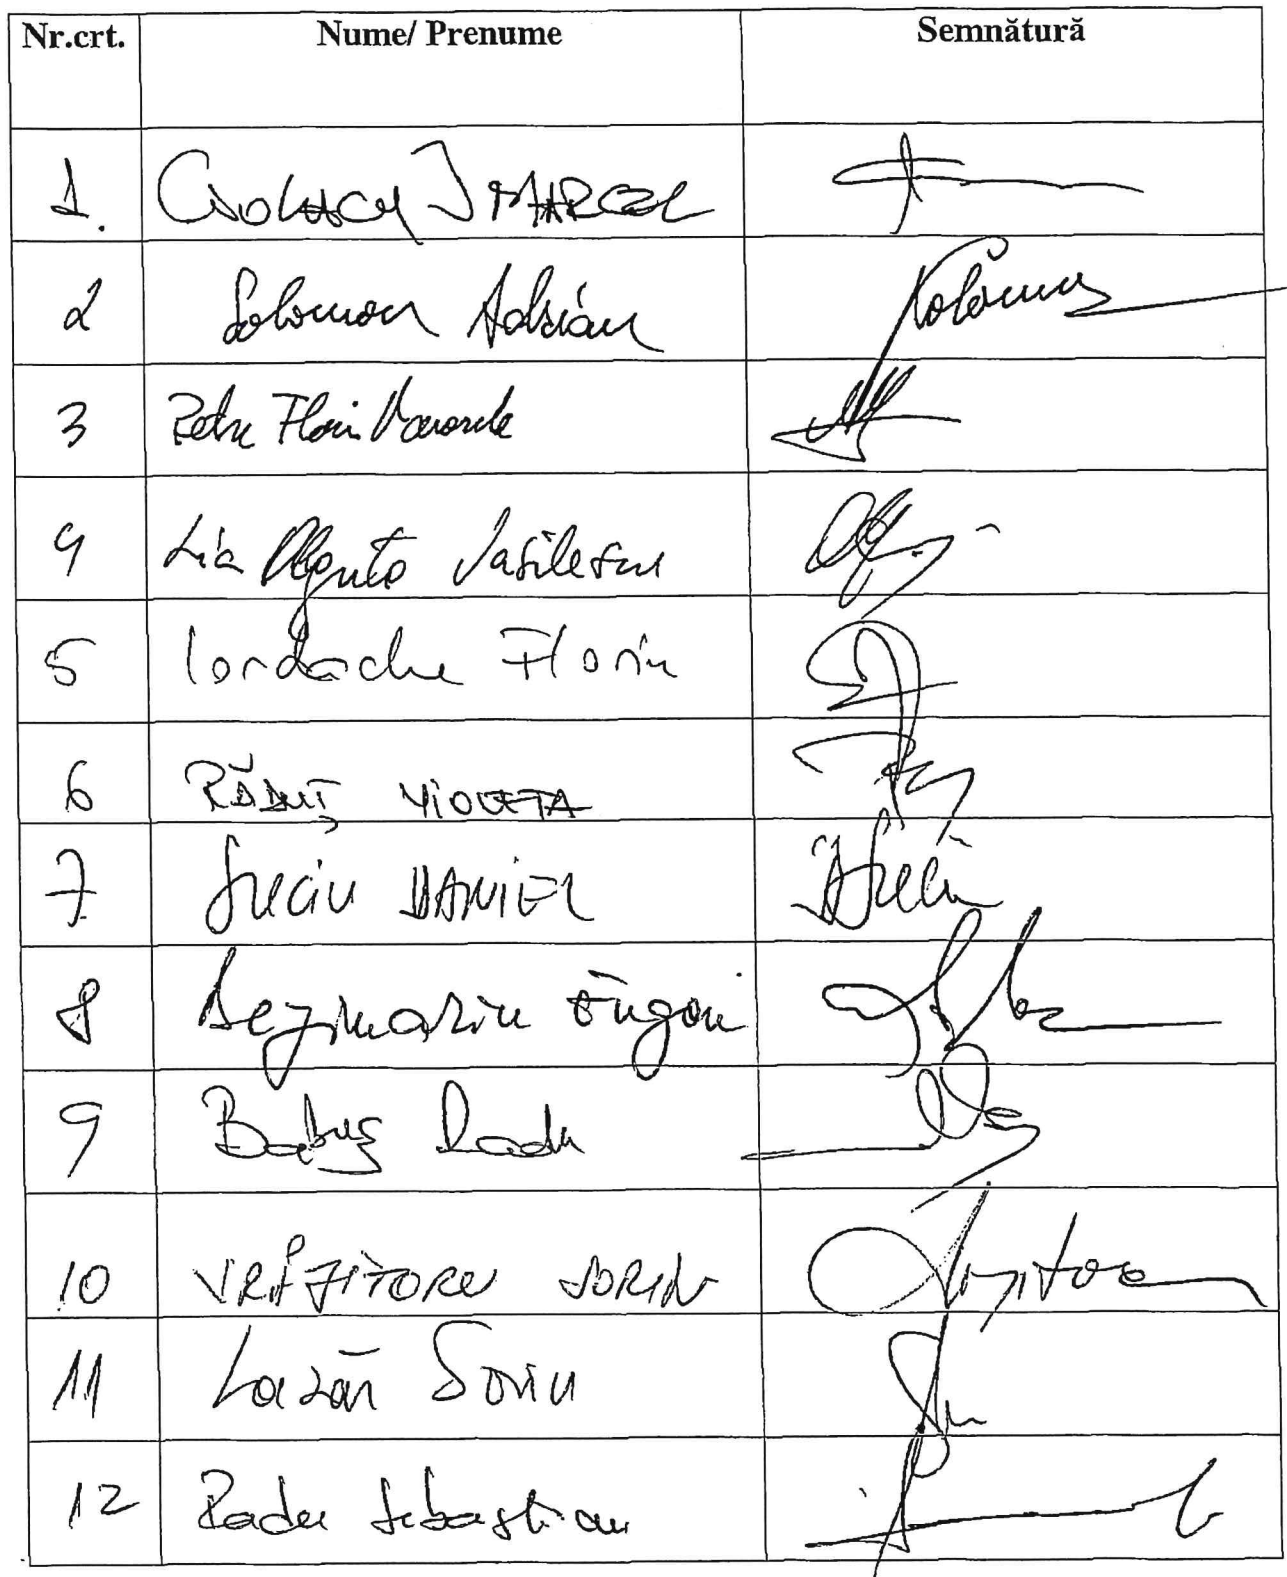 Nr.crt. Nume/ Prenume Semnătură
1. CIOLACU I MARCEL
2 Solomon Adrian Solomon
3 Petre Florin Manole
4 Lia Olguța Vasilescu
5 Iordache Florin
6 RĂDUȚ VIOLETA
7 Suciu DANIEL
8 Bejinariu Eugen
9 Babuș Radu
10 VRĂJITORU SORIN
11 Lazăr Sorin
12 Radu Sebastian